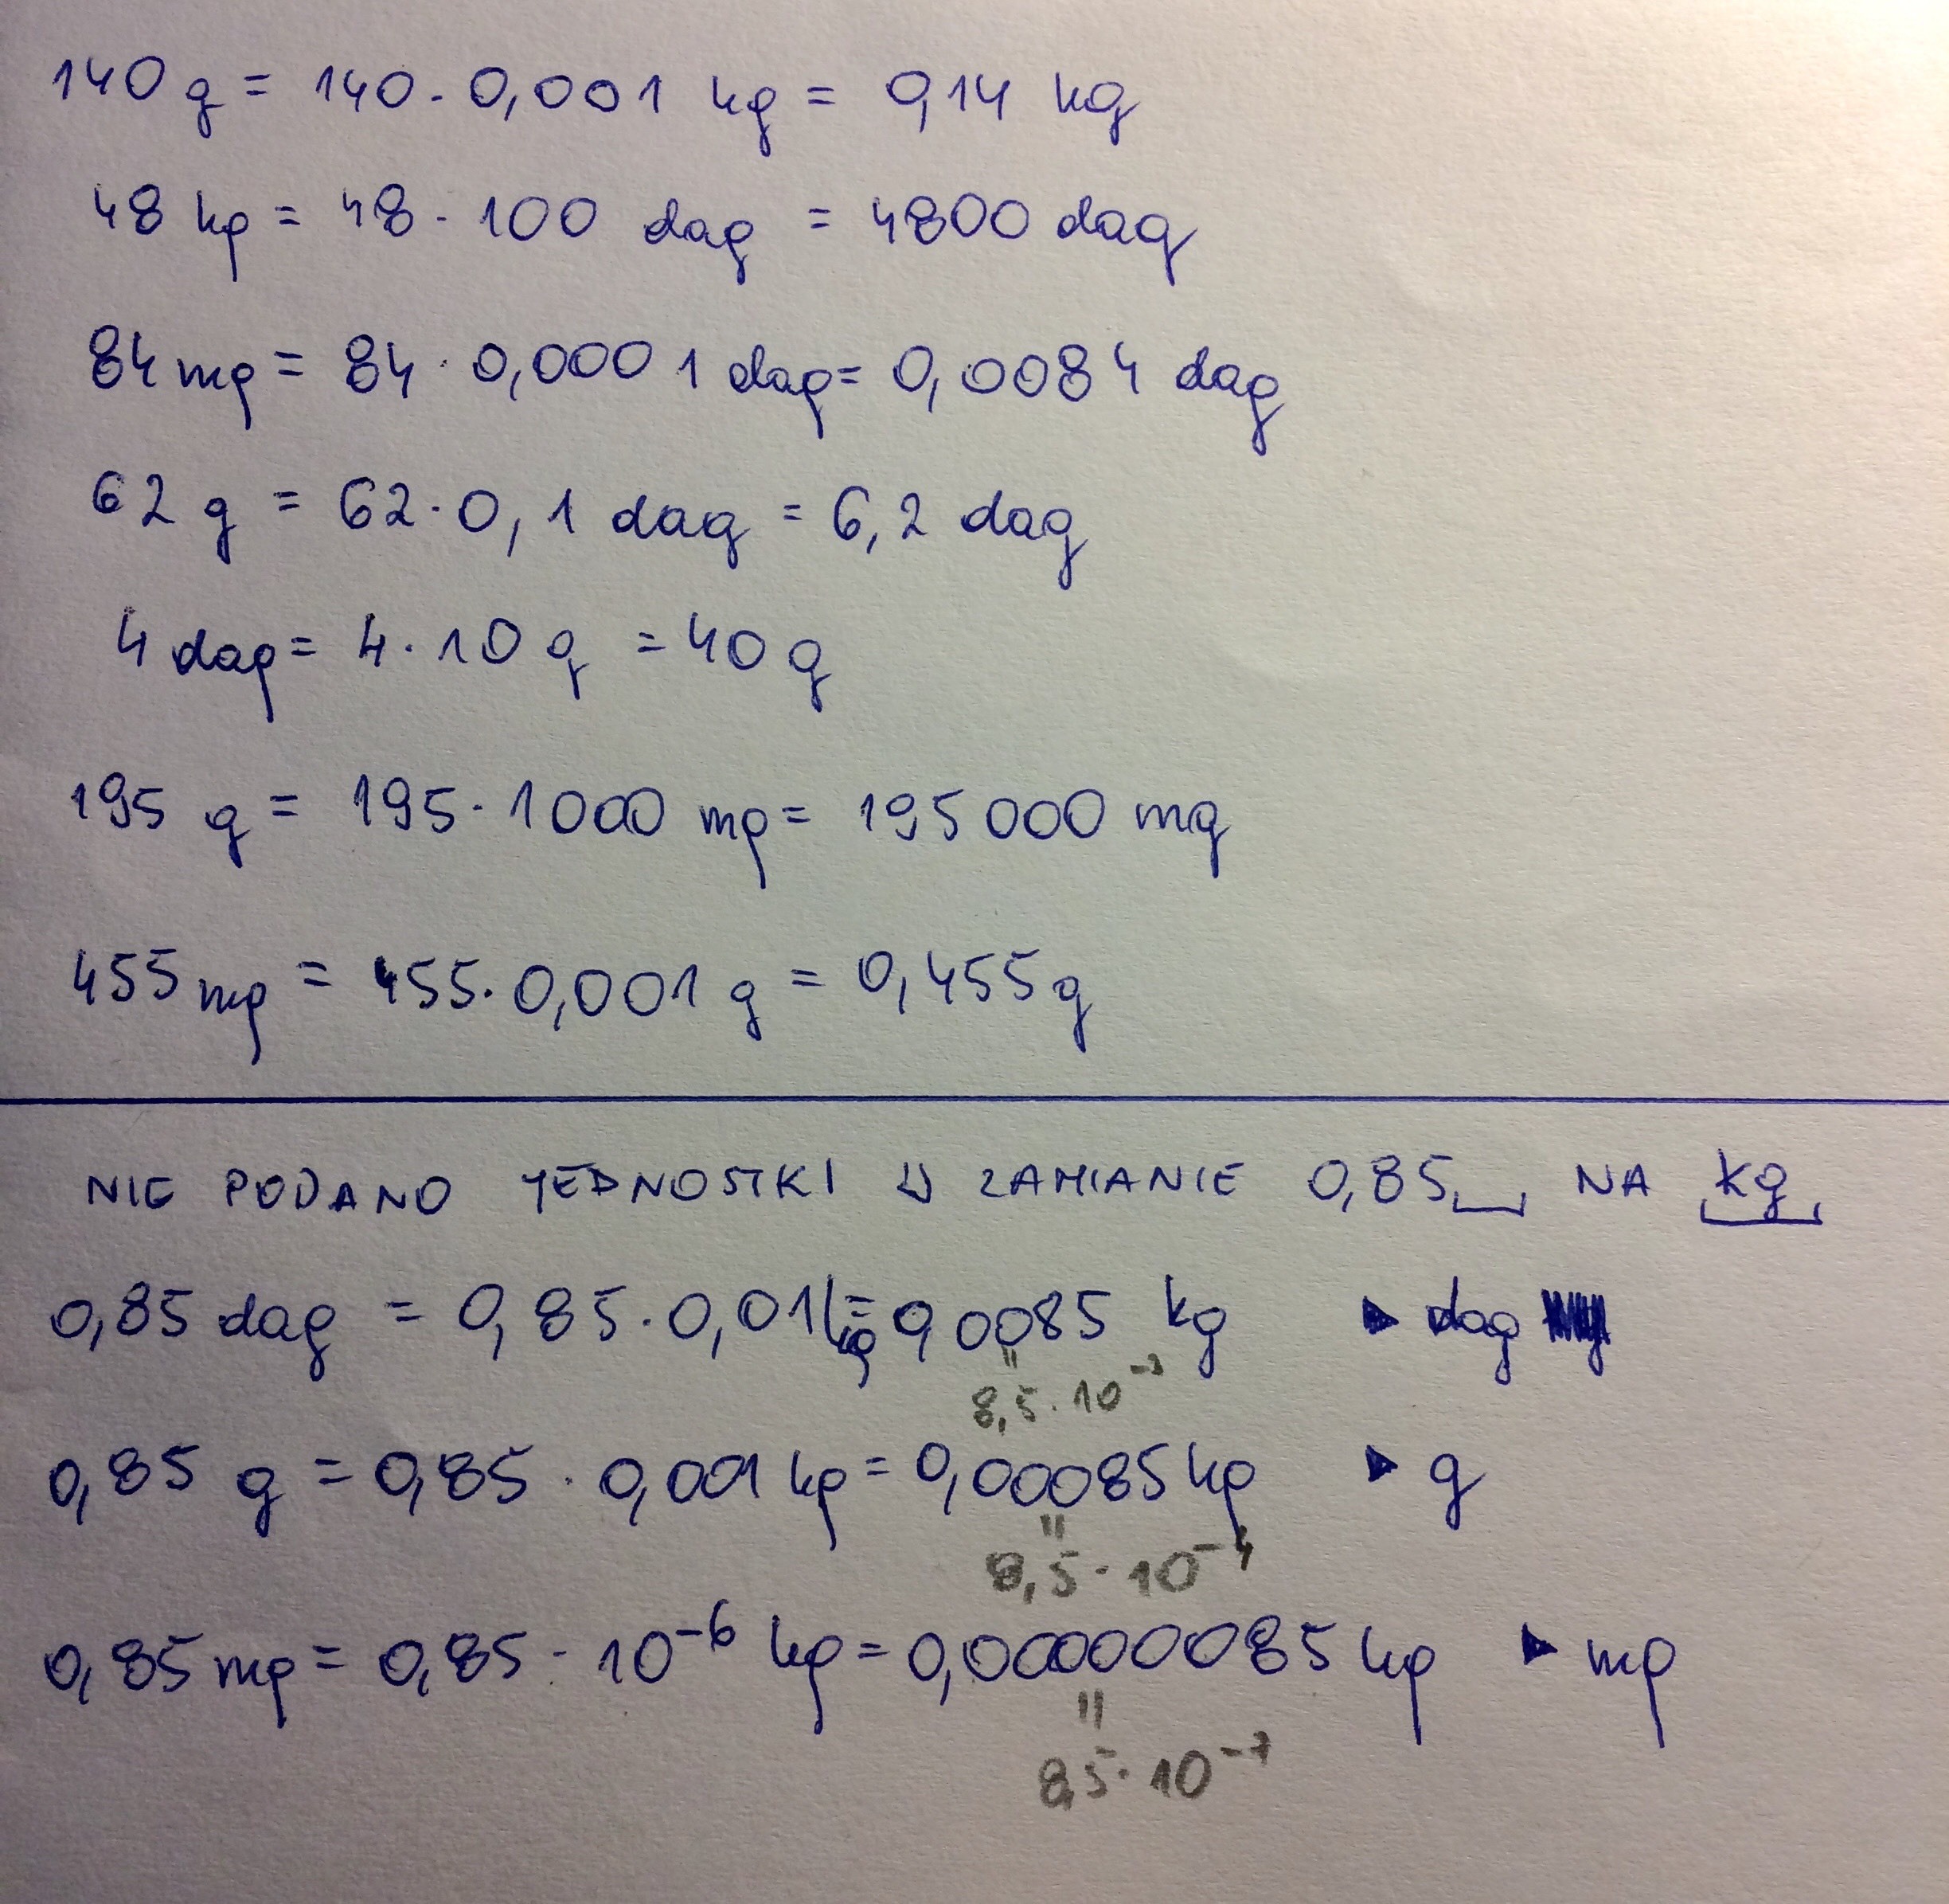 140 g = 140 · 0,001 kg = 0,14 kg
48 kg = 48 · 100 dag = 4800 dag
84 mg = 84 · 0,0001 dag = 0,0084 dag
62 g = 62 · 0,1 dag = 6,2 dag
4 dag = 4 · 10 g = 40 g
195 g = 195 · 1000 mg = 195000 mg
455 mg = 455 · 0,001 g = 0,455 g
NIE PODANO JEDNOSTKI W ZAMIANIE 0,85 NA kg
0,85 dag = 0,85 · 0,01 kg = 0,0085 kg ▶ dag
"
8,5 · 10⁻³
0,85 g = 0,85 · 0,001 kg = 0,00085 kg ▶ g
"
8,5 · 10⁻⁴
0,85 mg = 0,85 · 10⁻⁶ kg = 0,00000085 kg ▶ mg
"
8,5 · 10⁻⁷